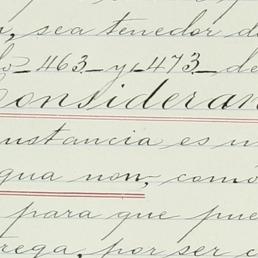 , sea tenedor d
463 y 473 de
Consideran
ustancia es u
gua non, comó
para que pue
rega, por ser c